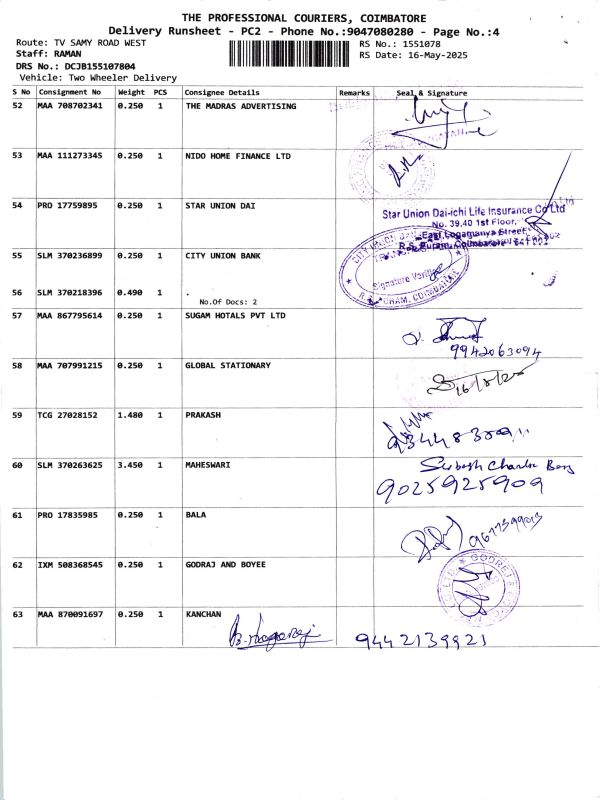 THE PROFESSIONAL COURIERS, COIMBATORE
Delivery Runsheet - PC2 - Phone No.:9047080280 - Page No.:4
Route: TV SAMY ROAD WEST
RS No.: 1551078
Staff: RAMAN
RS Date: 16-May-2025
DRS No.: DCJB155107804
Vehicle: Two Wheeler Delivery
S No Consignment No Weight PCS Consignee Details Remarks Seal & Signature
52 MAA 708702341 0.250 1 THE MADRAS ADVERTISING
53 MAA 111273345 0.250 1 NIDO HOME FINANCE LTD
54 PRO 17759895 0.250 1 STAR UNION DAI
Star Union Dai-ichi Life Insurance Co Ltd
No. 39,40 1st Floor,
East Logamanya Street,
R.S. Puram, Coimbatore 641 002
55 SLM 370236899 0.250 1 CITY UNION BANK
CITY UNION
Signature Verified
R.S. PURAM, COIMBATORE
56 SLM 370218396 0.490 1 .
No.Of Docs: 2
57 MAA 867795614 0.250 1 SUGAM HOTALS PVT LTD
9942063094
58 MAA 707991215 0.250 1 GLOBAL STATIONARY
16/5/25
59 TCG 27028152 1.480 1 PRAKASH
60 SLM 370263625 3.450 1 MAHESWARI
9025925909
61 PRO 17835985 0.250 1 BALA
62 IXM 508368545 0.250 1 GODRAJ AND BOYEE
GODREJ &
63 MAA 870091697 0.250 1 KANCHAN
B. Nagaraj 9442139921